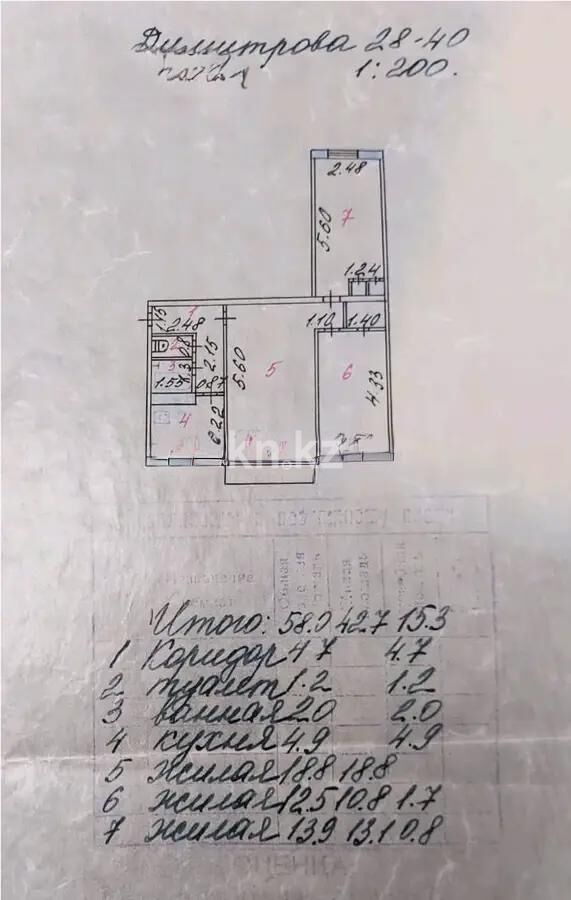 Димитрова 28-40
1:200.
2.48
5.60
7
1.24
1.15
1
2.48
1.10
1.40
2
0.8
2.15
3
1.3
5.60
5
6
1.55
0.87
4.33
4
2.22
kn.kz
Общая
Итого: 58.0 42.7 15.3
1 Коридор 4.7 4.7
2 туалет 1.2 1.2
3 ванная 2.0 2.0
4 кухня 4.9 4.9
5 жилая 18.8 18.8
6 жилая 12.5 10.8 1.7
7 жилая 13.9 13.1 0.8